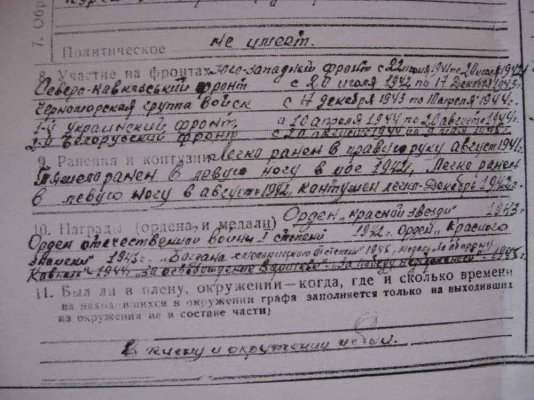 7. Об
Политическое не имеет.
8. Участие на фронтах Юго-Западный фронт с 22 июня 1941 по 20 июля 1942
Северо-Кавказский фронт с 20 июля 1942 по 17 декабря 1943г.
Черноморская группа войск с 17 декабря 1943 по 10 апреля 1944г.
1-й Украинский фронт с 10 апреля 1944 по 20 августа 1944г.
1-й Белорусский фронт с 20 август 1944 по
9. Ранения и контузии Легко ранен в правую руку август 1941г.
Тяжело ранен в левую ногу в 1942, Легко ранен
в левую ногу в август 1942, контужен легко-Декабрь 1943г.
10. Награды (ордена и медали) Орден „Красной звезды" 1943г
Орден отечественной войны I степени 1942. Орден „Красного
знамени" 1943г. „Богдана Хмельницкого 1945, медаль За оборону
Кавказа" 1944, За освобождение За победу над 1945
11. Был ли в плену, окружении—когда, где и сколько времени
на находившихся в окружении графа заполняется только на выходивших
из окружения не в составе части)
В плену и окружении не был.